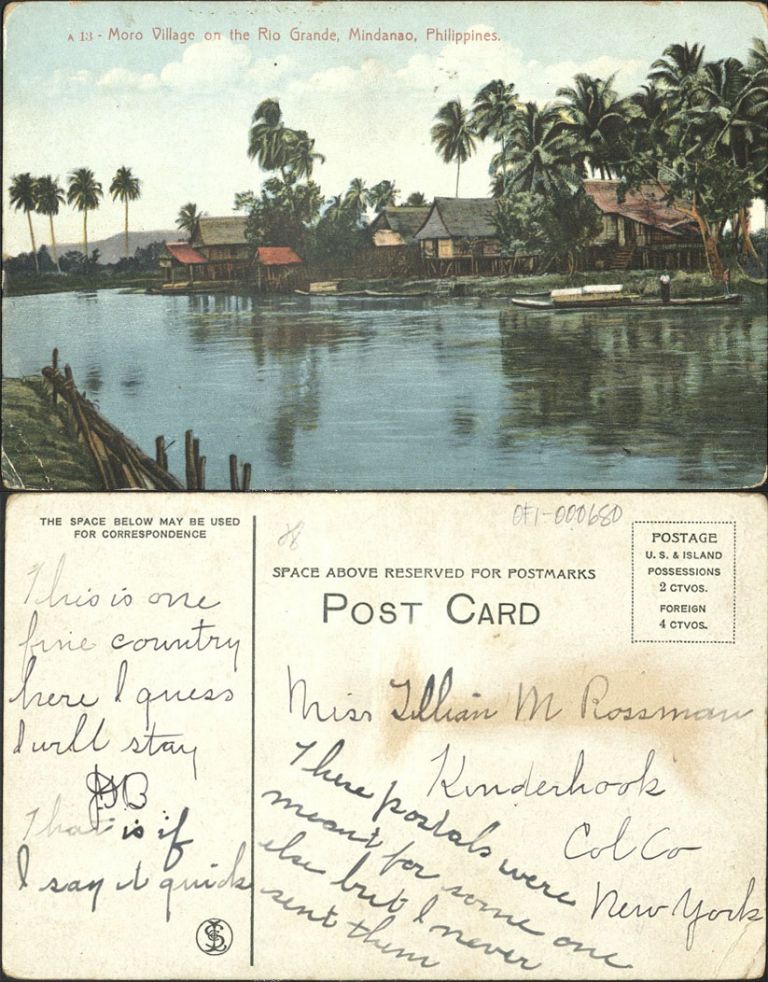 A 13 - Moro Village on the Rio Grande, Mindanao, Philippines.
THE SPACE BELOW MAY BE USED
FOR CORRESPONDENCE
This is one
fine country
here I guess
I will stay
JHB
That is if
I say it quick
OF1-000680
SPACE ABOVE RESERVED FOR POSTMARKS
POST CARD
POSTAGE
U. S. & ISLAND
POSSESSIONS
2 CTVOS.
FOREIGN
4 CTVOS.
Miss Lillian M Rossman
Kinderhook
Col Co
New York
These postals were
meant for some one
else but I never
sent them